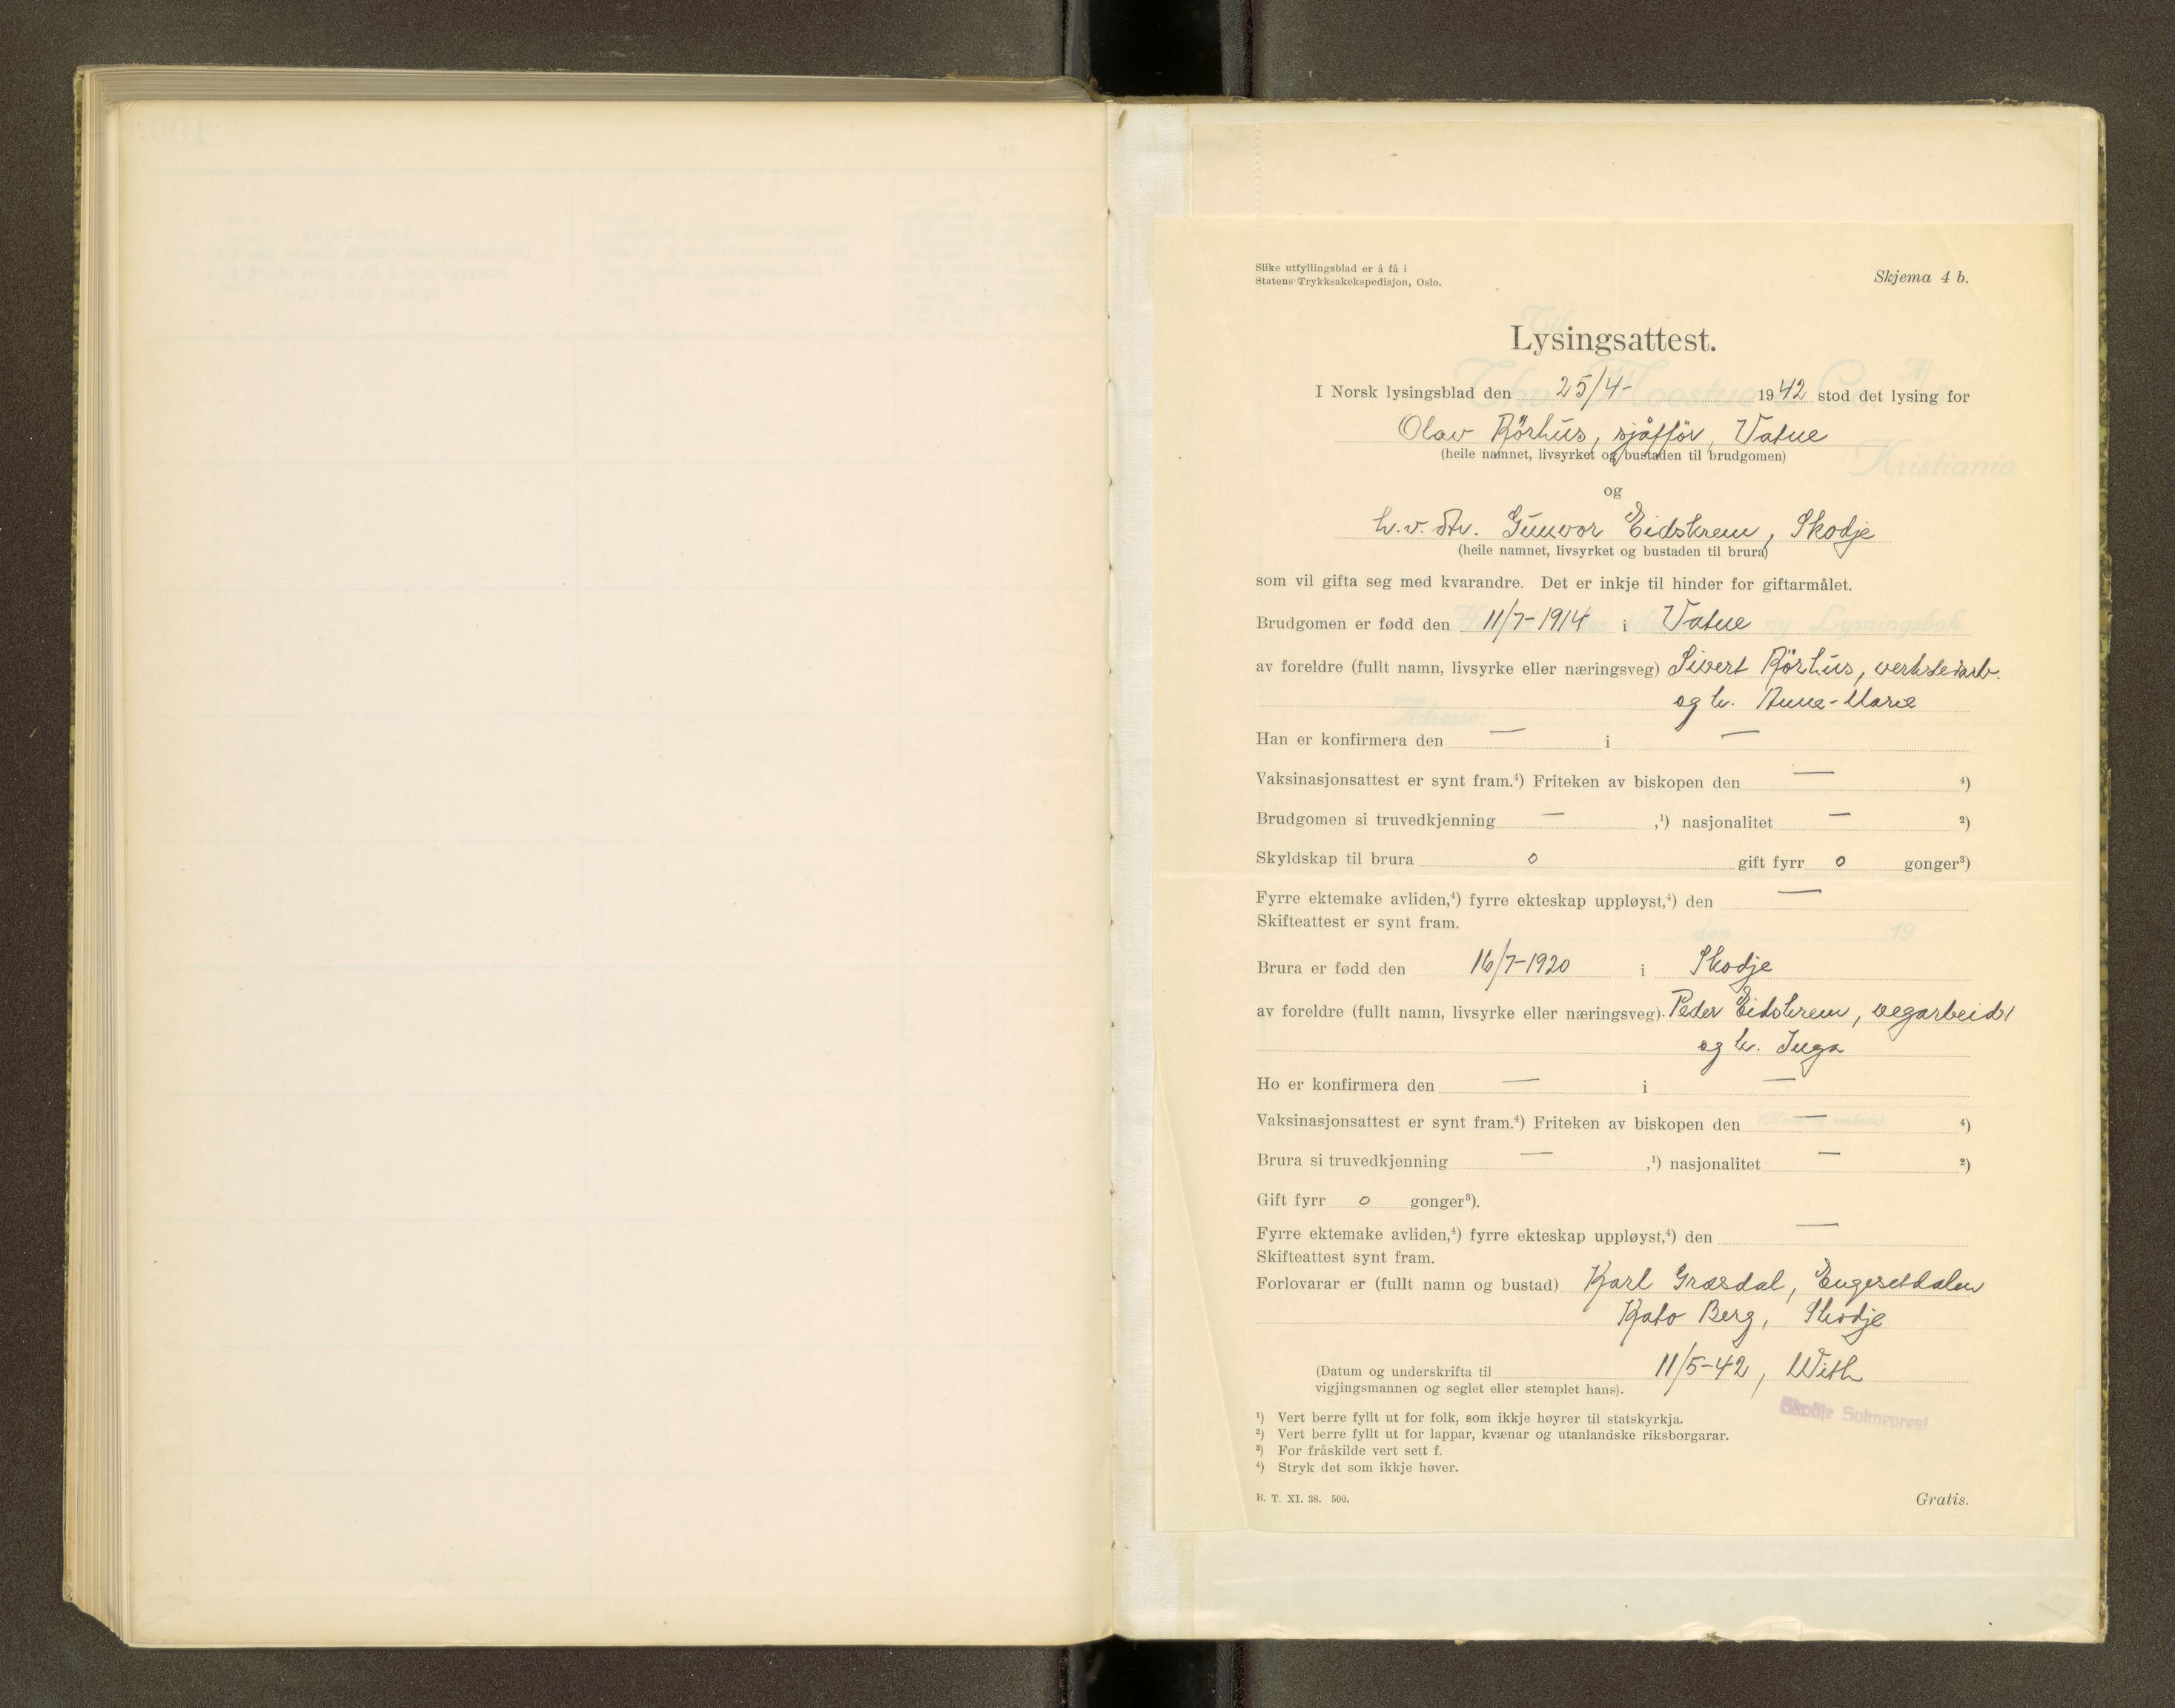 Slike utfyllingsblad er å få i
Statens Trykksakekspedisjon, Oslo.
Skjema 4 b.
Lysingsattest.
I Norsk lysingsblad den 25/4- 1942 stod det lysing for
Olav Rörhus, sjåfför, Vatne
(heile namnet, livsyrket og bustaden til brudgomen)
og
h.v. dtr. Gunvor Eidskrem, Skodje
(heile namnet, livsyrket og bustaden til brura)
som vil gifta seg med kvarandre. Det er inkje til hinder for giftarmålet.
Brudgomen er fødd den 11/7-1914 i Vatne
av foreldre (fullt namn, livsyrke eller næringsveg) Sivert Rörhus, verkstedarb.
og h. Anne-Marie
Han er konfirmera den — i —
Vaksinasjonsattest er synt fram.⁴) Friteken av biskopen den — ⁴)
Brudgomen si truvedkjenning — ,¹) nasjonalitet — ²)
Skyldskap til brura 0 gift fyrr 0 gonger³)
Fyrre ektemake avliden,⁴) fyrre ekteskap uppløyst,⁴) den —
Skifteattest er synt fram.
Brura er fødd den 16/7-1920 i Skodje
av foreldre (fullt namn, livsyrke eller næringsveg) Peder Eidskrem, vegarbeidr
og h. Inga
Ho er konfirmera den — i —
Vaksinasjonsattest er synt fram.⁴) Friteken av biskopen den — ⁴)
Brura si truvedkjenning — ,¹) nasjonalitet — ²)
Gift fyrr 0 gonger³).
Fyrre ektemake avliden,⁴) fyrre ekteskap uppløyst,⁴) den —
Skifteattest synt fram.
Forlovarar er (fullt namn og bustad) Karl Græsdal, Engesetdalen
Kato Berg, Skodje
(Datum og underskrifta til 11/5-42, With
vigjingsmannen og seglet eller stemplet hans).
Skodje Sokneprest
¹) Vert berre fyllt ut for folk, som ikkje høyrer til statskyrkja.
²) Vert berre fyllt ut for lappar, kvænar og utanlandske riksborgarar.
³) For fråskilde vert sett f.
⁴) Stryk det som ikkje høver.
B. T. XI. 38. 500.
Gratis.